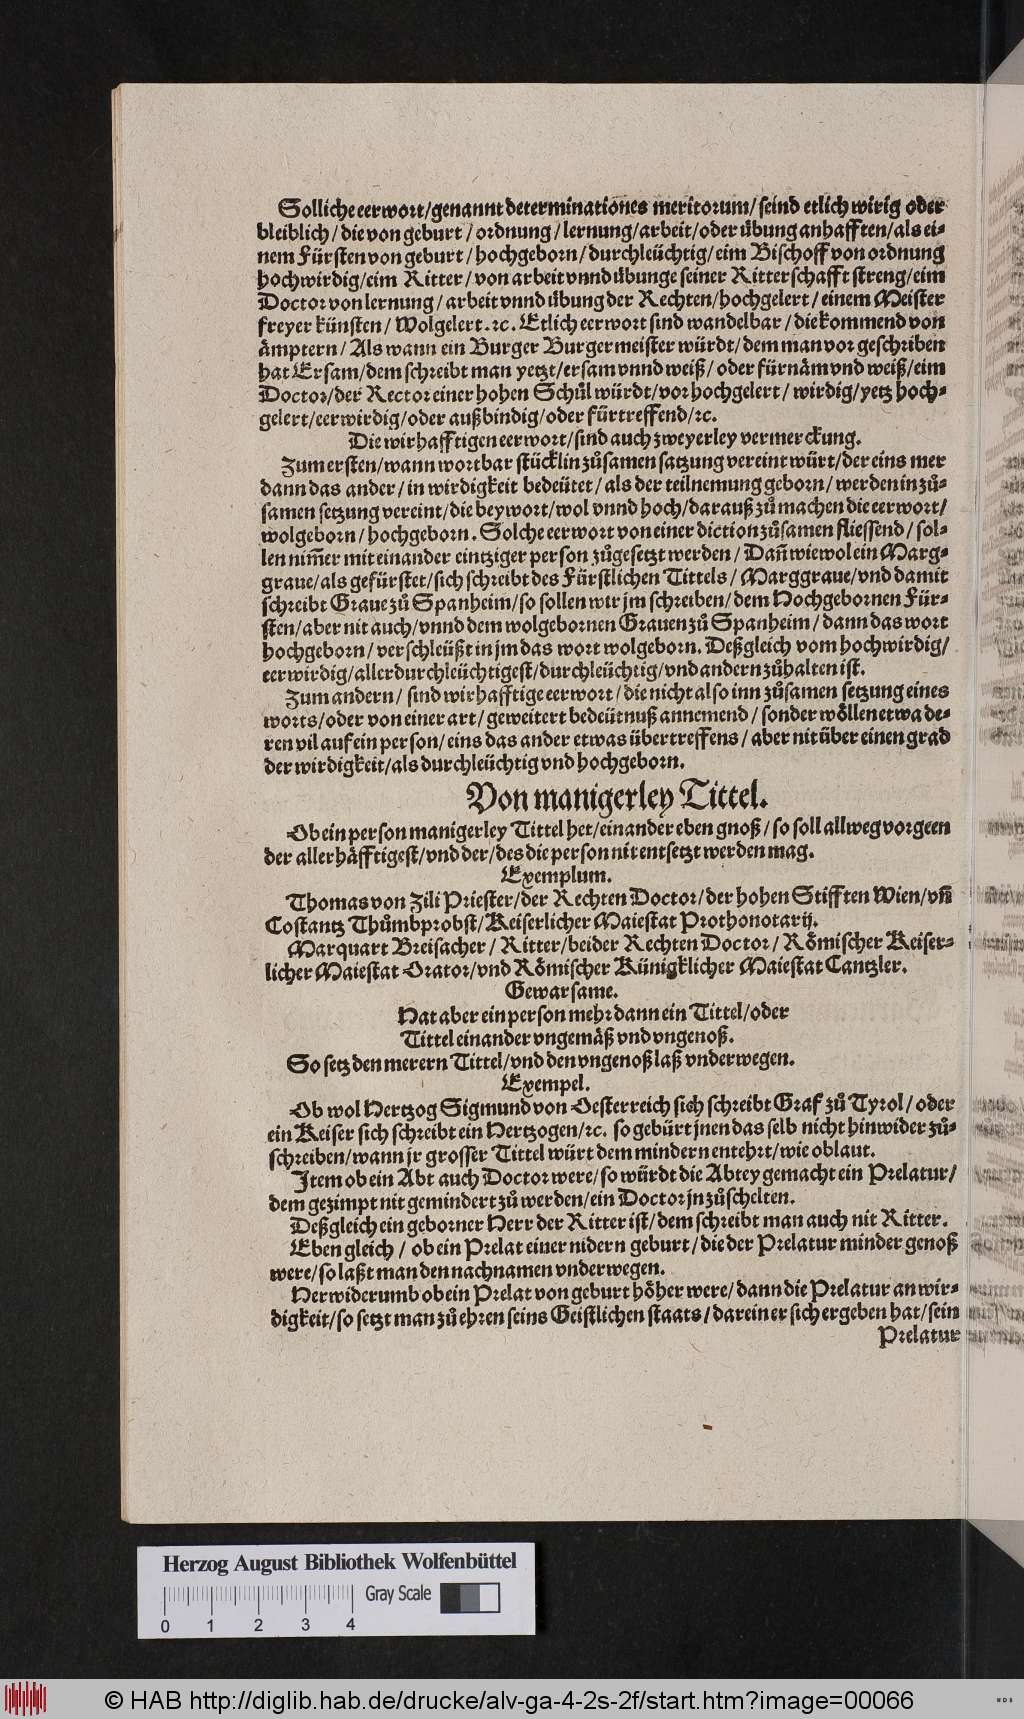 Solliche eerwort/genannt determinationes meritorum/seind etlich wirig oder
bleiblich/die von geburt/ordnung/lernung/arbeit/oder übung anhafften/als ei-
nem Fürsten von geburt/hochgeborn/durchleüchtig/eim Bischoff von ordnung
hochwirdig/eim Ritter/von arbeit vnnd übunge seiner Ritterschafft streng/eim
Doctor von lernung/arbeit vnnd übung der Rechten/hochgelert/einem Meister
freyer künsten/Wolgelert.ꝛc. Etlich eerwort sind wandelbar/die kommend von
ämptern/Als wann ein Burger Burgermeister würdt/dem man vor geschriben
hat Ersam/dem schreibt man yetzt/ersam vnnd weiß/oder fürnäm vnd weiß/eim
Doctor/der Rector einer hohen Schůl würdt/vor hochgelert/wirdig/yetz hoch-
gelert/eerwirdig/oder außbindig/oder fürtreffend/ꝛc.
Die wirhafftigen eerwort/sind auch zweyerley vermerckung.
Zum ersten/wann wortbar stücklin zůsamen satzung vereint würt/der eins mer
dann das ander/in wirdigkeit bedeütet/als der teilnemung geborn/werden in zů-
samen setzung vereint/die beywort/wol vnnd hoch/darauß zů machen die eerwort/
wolgeborn/hochgeborn. Solche eerwort von einer diction zůsamen fliessend/sol-
len nim̄er mit einander eintziger person zůgesetzt werden/Dan̄ wiewol ein Marg-
graue/als gefürstet/sich schreibt des Fürstlichen Tittels/Marggraue/vnd damit
schreibt Graue zů Spanheim/so sollen wir jm schreiben/dem Hochgebornen Für-
sten/aber nit auch/vnnd dem wolgebornen Grauen zů Spanheim/dann das wort
hochgeborn/verschleüßt in jm das wort wolgeborn. Deßgleich vom hochwirdig/
eerwirdig/allerdurchleüchtigest/durchleüchtig/vnd andern zůhalten ist.
Zum andern/sind wirhafftige eerwort/die nicht also inn zůsamen setzung eines
worts/oder von einer art/geweitert bedeütnuß annemend/sonder wöllen etwa de-
ren vil auf ein person/eins das ander etwas übertreffens/aber nit über einen grad
der wirdigkeit/als durchleüchtig vnd hochgeborn.
Von manigerley Tittel.
Ob ein person manigerley Tittel het/einander eben gnoß/so soll allweg vorgeen
der allerhäfftigest/vnd der/des die person nit entsetzt werden mag.
Exemplum.
Thomas von Zili Priester/der Rechten Doctor/der hohen Stifften Wien/vn̄
Costantz Thůmbprobst/Keiserlicher Maiestat Prothonotarij.
Marquart Breisacher/Ritter/beider Rechten Doctor/Römischer Keiser-
licher Maiestat Orator/vnd Römischer Künigklicher Maiestat Cantzler.
Gewarsame.
Hat aber ein person mehr dann ein Tittel/oder
Tittel einander vngemäß vnd vngenoß.
So setz den merern Tittel/vnd den vngenoß laß vnderwegen.
Exempel.
Ob wol Hertzog Sigmund von Oesterreich sich schreibt Graf zů Tyrol/oder
ein Keiser sich schreibt ein Hertzogen/ꝛc. so gebürt jnen das selb nicht hinwider zů-
schreiben/wann jr grosser Tittel würt dem mindern entehrt/wie oblaut.
Item ob ein Abt auch Doctor were/so würdt die Abtey gemacht ein Prelatur/
dem gezimpt nit gemindert zů werden/ein Doctor jn zůschelten.
Deßgleich ein geborner Herr der Ritter ist/dem schreibt man auch nit Ritter.
Eben gleich/ob ein Prelat einer nidern geburt/die der Prelatur minder genoß
were/so laßt man den nachnamen vnderwegen.
Herwiderumb ob ein Prelat von geburt höher were/dann die Prelatur an wir-
digkeit/so setzt man zů ehren seins Geistlichen staats/darein er sich ergeben hat/sein
Prelatur
Herzog August Bibliothek Wolfenbüttel
Gray Scale
0 1 2 3 4
© HAB http://diglib.hab.de/drucke/alv-ga-4-2s-2f/start.htm?image=00066